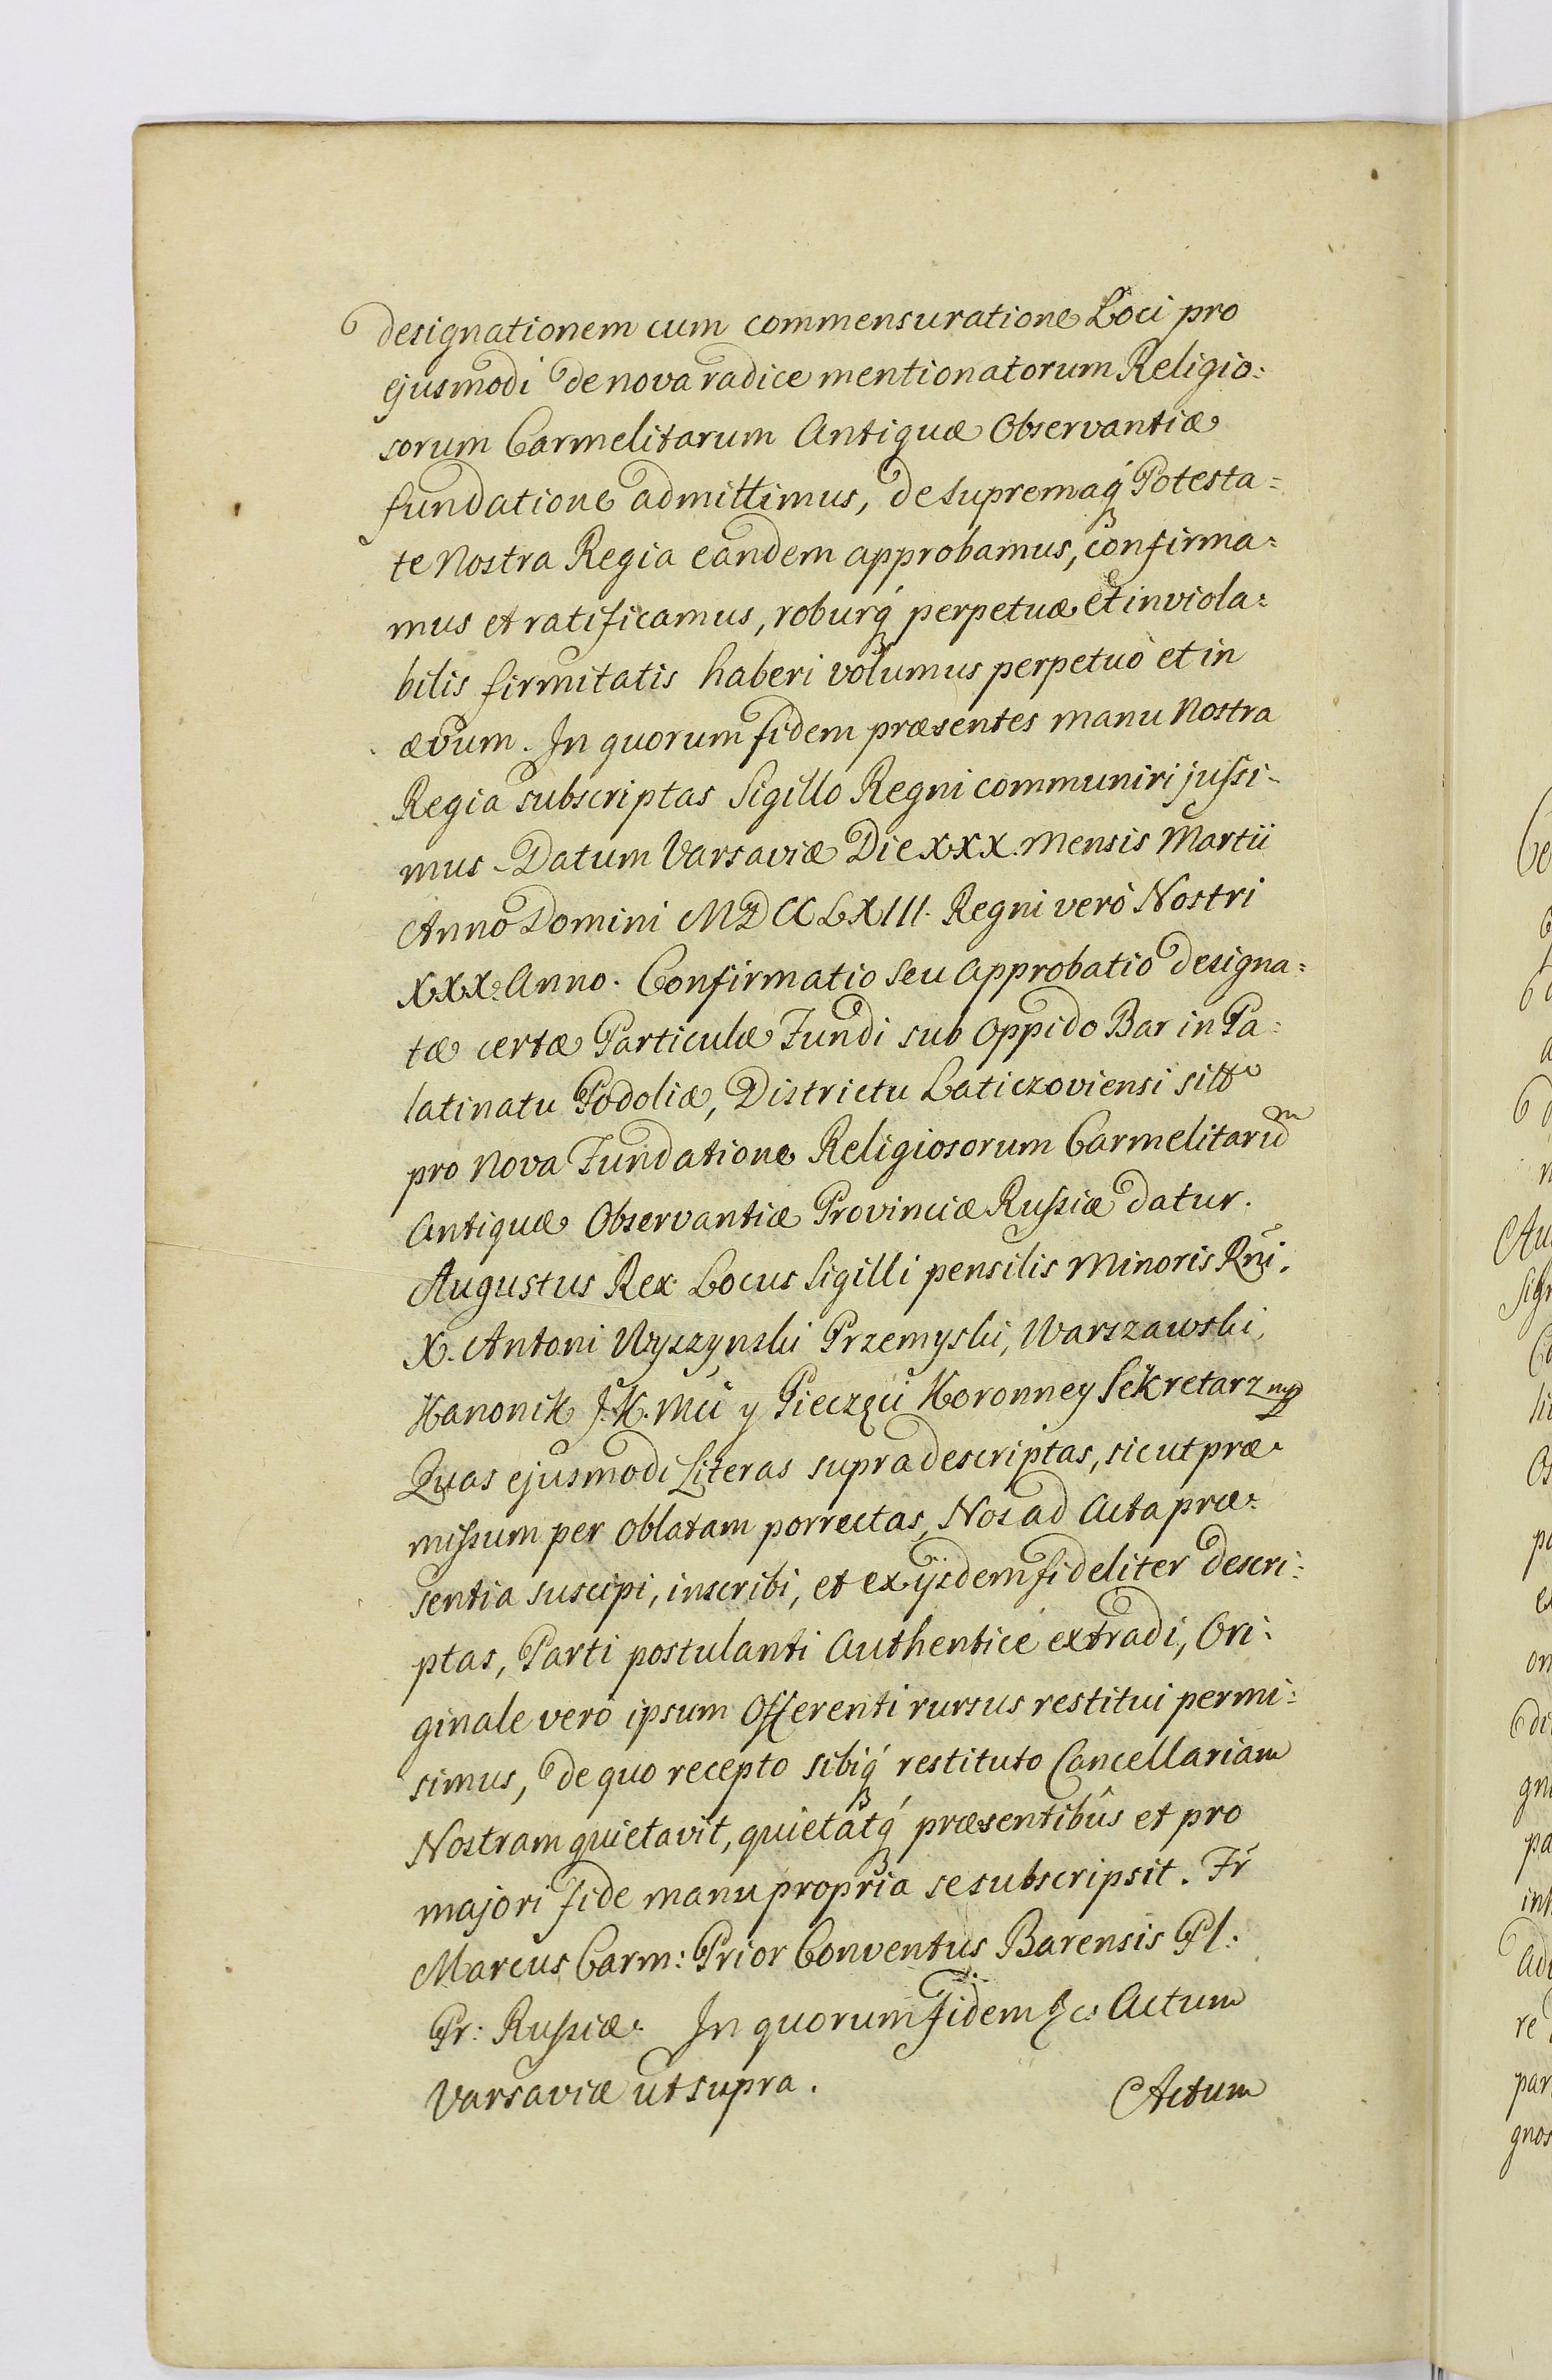 designationem cum commensuratione Loci pro
ejusmodi de nova radice mentionatorum Religio:
sorum Carmelitarum Antiquæ Observantiæ
fundatione admittimus, de supremaq́ꝫ Potesta=
te Nostra Regia eandem approbamus, confirma=
mus et ratificamus, roburq́ꝫ perpetuæ et inviola=
bilis firmitatis haberi volumus perpetuò et in
ævum. In quorum fidem præsentes manu Nostra
Regia subscriptas Sigillo Regni communiri juſsi-
mus - Datum Varsaviæ Die XXX. Mensis Martii
Anno Domini MDCCLXIII. Regni verò Nostri
XXX. Anno. Confirmatio seu Approbatio designa=
tæ certæ Particulæ Fundi sub Oppido Bar in Pa=
latinatu Podoliæ, Districtu Laticzoviensi sittæ
pro Nova Fundatione Religiosorum Carmelitarum
Antiquæ Observantiæ Provinciæ Ruſsiæ datur.
Augustus Rex. Locus Sigilli pensilis Minoris Rni.
X. Antoni Wyszyński Przemyski, Warszawski,
Kanonik J. K. Mći y Pieczęci Koronney Sekretarz mp
Quas ejusmodi Literas supra descriptas, sicut præ-
miſsum per Oblatam porrectas, Nos ad Acta præ=
sentia suscipi, inscribi, et ex ijsdem fideliter descri=
ptas, Parti postulanti Authenticè extradi, Ori=
ginale verò ipsum Offerenti rursus restitui permi=
simus, de quo recepto sibiq́ꝫ restituto Cancellariam
Nostram quietavit, quietatq́ꝫ præsentibûs et pro
majori fide manu propria se subscripsit. Fr
Marcus Carm: Prior Conventus Barensis Pl:
Pr: Ruſsiæ. In quorum Fidem &c. Actum
Varsaviæ ut supra.
Actum